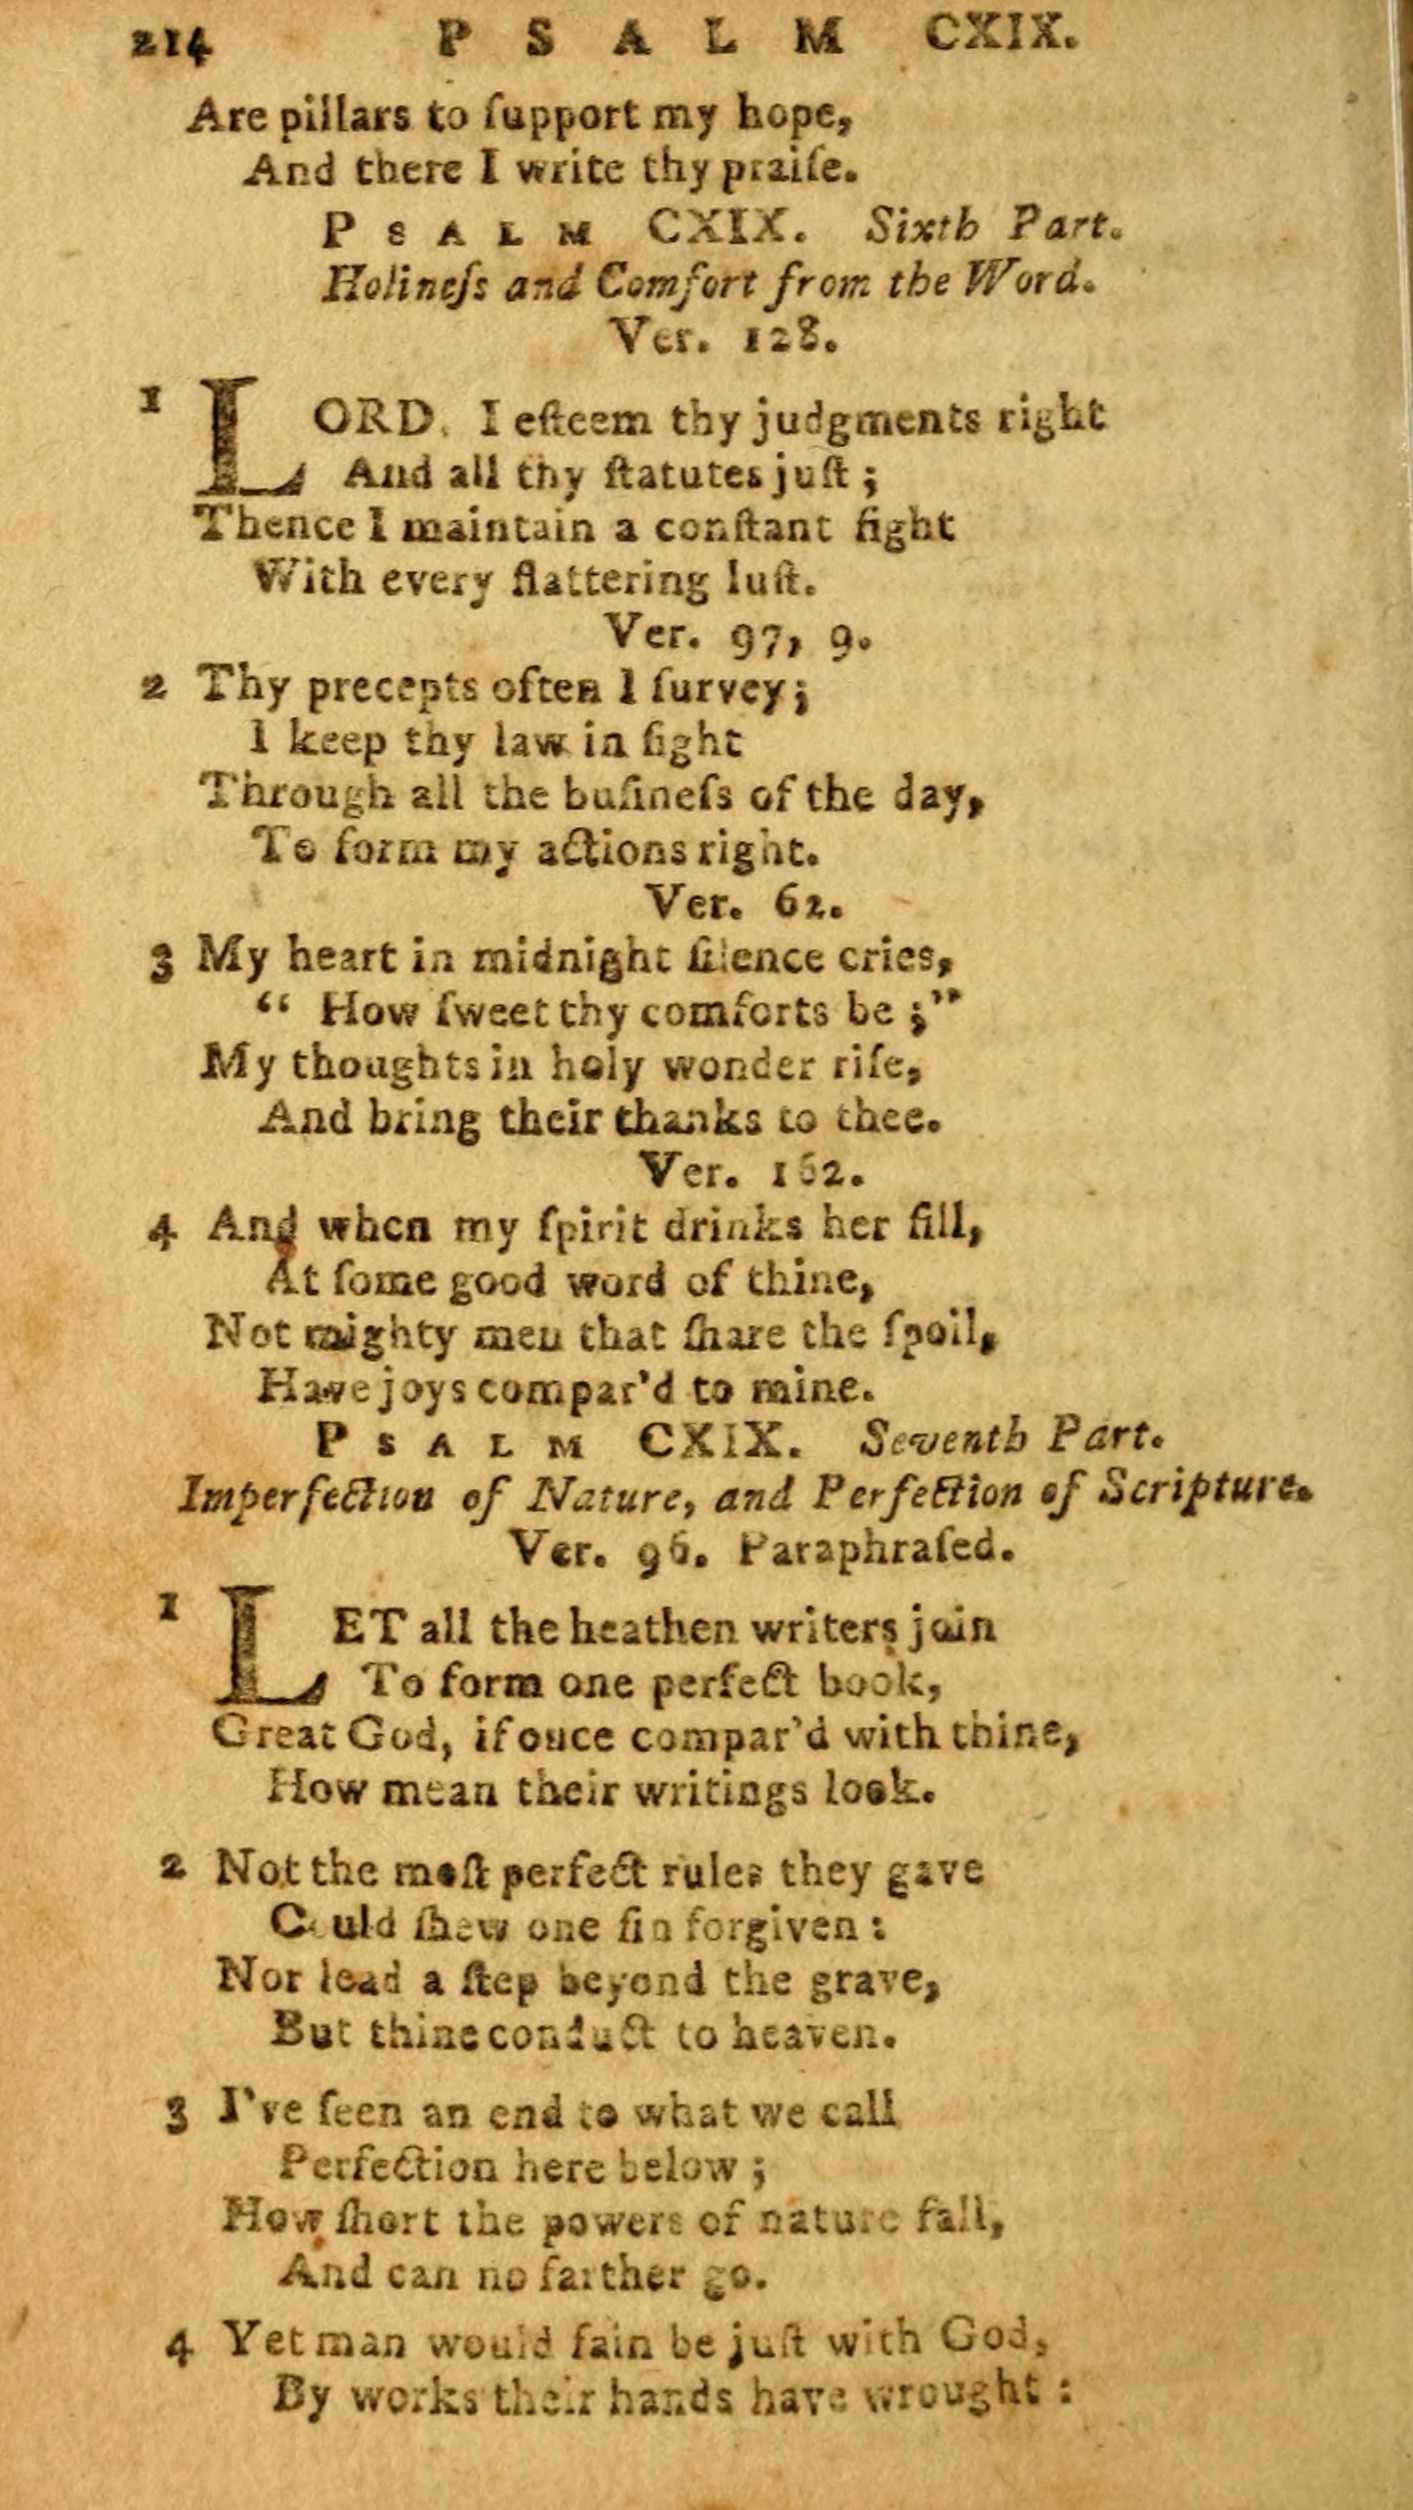 214 PSALM CXIX.
Are pillars to ſupport my hope,
And there I write thy praiſe.
PSALM CXIX. Sixth Part.
Holineſs and Comfort from the Word.
Ver. 128.
1 LORD, I eſteem thy judgments right
And all thy ſtatutes juſt ;
Thence I maintain a conſtant fight
With every flattering luſt.
Ver. 97, 9.
2 Thy precepts often I ſurvey;
I keep thy law in ſight
Through all the buſineſs of the day,
To form my actions right.
Ver. 62.
3 My heart in midnight ſilence cries,
“ How ſweet thy comforts be ;”
My thoughts in holy wonder riſe,
And bring their thanks to thee.
Ver. 162.
4 And when my ſpirit drinks her fill,
At ſome good word of thine,
Not mighty men that ſhare the ſpoil,
Have joys compar'd to mine.
PSALM CXIX. Seventh Part.
Imperfection of Nature, and Perfection of Scripture.
Ver. 96. Paraphraſed.
1 LET all the heathen writers join
To form one perfect book,
Great God, if once compar'd with thine,
How mean their writings look.
2 Not the moſt perfect rules they gave
Could ſhew one ſin forgiven :
Nor lead a ſtep beyond the grave,
But thine conduct to heaven.
3 I've ſeen an end to what we call
Perfection here below ;
How ſhort the powers of nature fall,
And can no farther go.
4 Yet man would fain be juſt with God,
By works their hands have wrought :